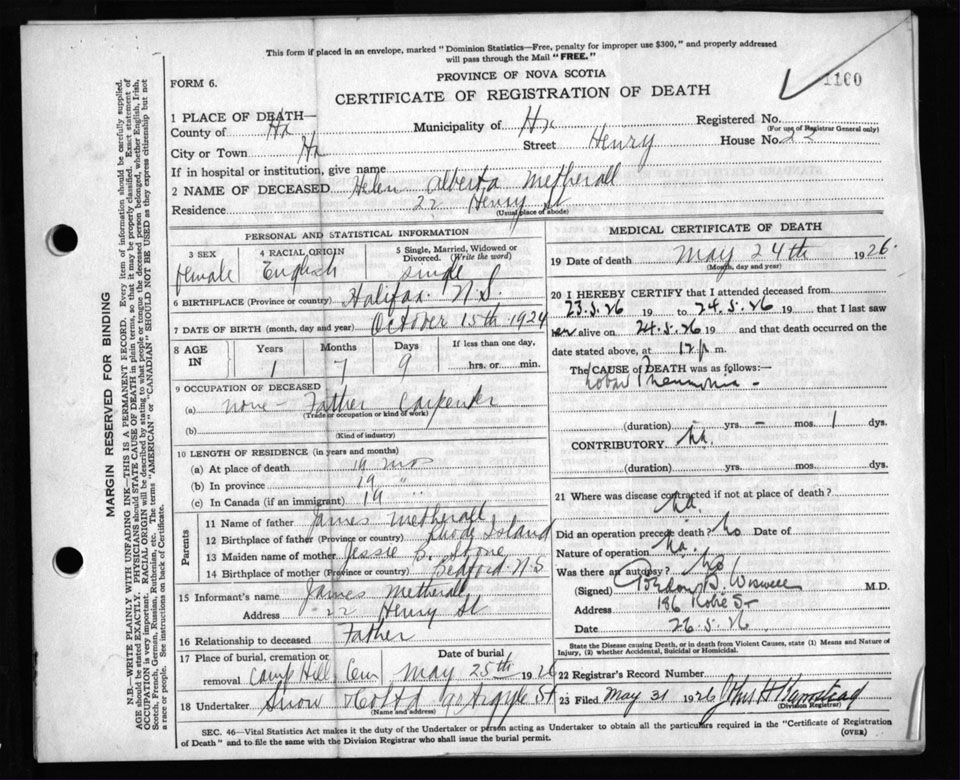 This form if placed in an envelope, marked "Dominion Statistics—Free, penalty for improper use $300," and properly addressed
will pass through the Mail "FREE."
PROVINCE OF NOVA SCOTIA
FORM 6.
1160
CERTIFICATE OF REGISTRATION OF DEATH
1 PLACE OF DEATH—
County of Hx Municipality of Hx Registered No.
(For use of Registrar General only)
City or Town Hx Street Henry House No. 22
If in hospital or institution, give name
2 NAME OF DECEASED Helen Alberta Metherall
Residence 22 Henry St
(Usual place of abode)
PERSONAL AND STATISTICAL INFORMATION
3 SEX Female
4 RACIAL ORIGIN English
5 Single, Married, Widowed or Divorced. (Write the word) Single
6 BIRTHPLACE (Province or country) Halifax N.S.
7 DATE OF BIRTH (month, day and year) October 15th 1924
8 AGE IN Years 1 Months 7 Days 9 If less than one day, hrs. or min.
9 OCCUPATION OF DECEASED
(a) none - Father Carpenter
(Trade or occupation or kind of work)
(b)
(Kind of industry)
10 LENGTH OF RESIDENCE (in years and months)
(a) At place of death 19 mos
(b) In province 19 "
(c) In Canada (if an immigrant) 19 "
Parents
11 Name of father James Metherall
12 Birthplace of father (Province or country) Rhode Island
13 Maiden name of mother Jessie B.
14 Birthplace of mother (Province or country) Bedford N.S
15 Informant's name James Metherall
Address 22 Henry St
16 Relationship to deceased Father
17 Place of burial, cremation or removal Camp Hill Cem Date of burial May 25th 1926
18 Undertaker Snow & Co Ltd Argyle St
(Name and address)
MEDICAL CERTIFICATE OF DEATH
19 Date of death May 24th 1926
(Month, day and year)
20 I HEREBY CERTIFY that I attended deceased from
23.5.26 19 to 24.5.26 19 that I last saw
her alive on 24.5.26 19 and that death occurred on the
date stated above, at 12 p m.
The CAUSE of DEATH was as follows:
Lobar Pneumonia -
(duration) - yrs. - mos. 1 dys.
CONTRIBUTORY na.
(duration) yrs. mos. dys.
21 Where was disease contracted if not at place of death?
na.
Did an operation precede death? no Date of
Nature of operation na.
Was there an autopsy? no
(Signed) M.D.
Address 186 Robie St
Date 26.5.26
State the Disease causing Death, or in death from Violent Causes, state (1) Means and Nature of
Injury, (2) whether Accidental, Suicidal or Homicidal.
22 Registrar's Record Number
23 Filed May 31 1926
(Division Registrar)
SEC. 46—Vital Statistics Act makes it the duty of the Undertaker or person acting as Undertaker to obtain all the particulars required in the "Certificate of Registration
of Death" and to file the same with the Division Registrar who shall issue the burial permit.
(OVER)
MARGIN RESERVED FOR BINDING
N.B.—WRITE PLAINLY WITH UNFADING INK—THIS IS A PERMANENT RECORD. Every item of information should be carefully supplied.
AGE should be stated EXACTLY. PHYSICIANS should STATE CAUSE OF DEATH in plain terms, so that it may be properly classified. Exact statement of
OCCUPATION is very important. RACIAL ORIGIN will be described by stating to what people or tongue the deceased person belonged, whether English, Irish,
Scotch, French, German, Russian, Ruthenian, etc. The terms "AMERICAN" or "CANADIAN" SHOULD NOT BE USED as they express citizenship but not
a race or people. See instructions on back of Certificate.